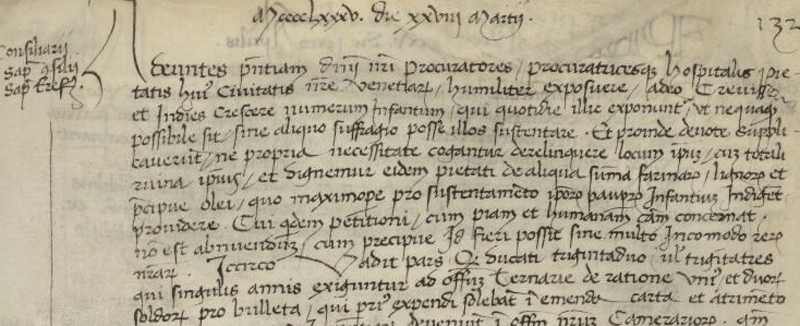 MCCCCLXXXV. die XXVIII Martij.
132
Consiliarij
Sap. Cõsilij
Sap. terrę f.
deuntes pñtiam dñij nrĩ procuratores / procuratricesq; hospitalis pie-
tatis huiꝰ Civitatis nr̃e Venetiarꝝ / humiliter exposuere / adeo Crevisse
et Indies Crescere numerum Infantium / qui quotidie illic exponunt᷑ / ut nequaq̃
possibile sit / sine aliquo suffragio posse illos sustentare. Et proinde devote suppli-
caverũt / ne propria necessitate cogantur derelinquere locum ip̃uz / cuz totali
ruina ip̃ius / et dignemur eidem pietati de aliqua suma farinarꝝ / lignorꝝ et
p̃cipue olei / quo maximope pro sustentamẽto ip̃orꝝ pauperꝝ Infantiuz Indiget
providere. Cui qdem petitioni / cum piam et humanam cãm concernat /
nõ est abnuendũz / cum precipue Id fieri possit sine multo Incomodo rerꝝ
nr̃arꝝ. Iccirco Vadit pars Qꝫ ducati trigintaduo / vl̃ trigitatres
qui singulis annis exiguntur ad offm̃z Ternarie de ratione Vniꝰ et duorꝝ
soldorꝝ pro brilleta / qui priꝰ expendi solebãt ĩ emenda carta et atrimẽto
devenit ĩ offm̃ nrõrꝝ Camerariorꝝ. qm̃